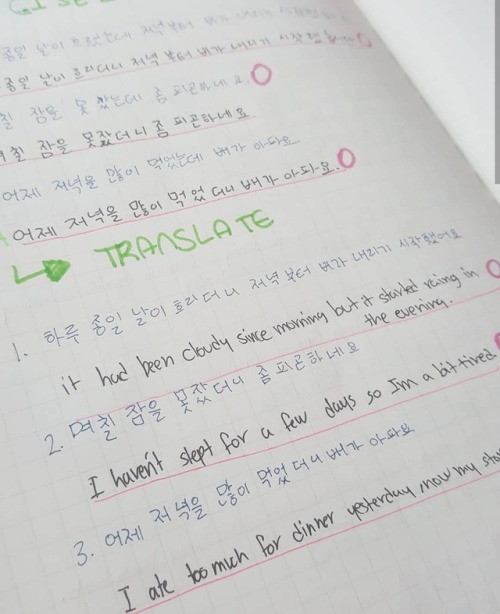 종일 날이 흐렸는데 저녁부터 배가 내리기
종일 날이 흐리더니 저녁 부터 배가 내리기 시작했
칠 잠을 못 잤는데 좀 피곤하네요.
며칠 잠을 못잤더니 좀 피곤하네요
어제 저녁을 많이 먹었는데 배가 아파요
어제 저녁을 많이 먹었더니 배가 아파요.
TRANSLATE
1. 하루 종일 날이 흐리더니 저녁 부터 배가 내리기 시작했어요
it had been cloudy since morning but it started raing in
the evening.
2. 며칠 잠을 못잤더니 좀 피곤하네요
I haven't slept for a few days so Im a bit tired
3. 어제 저녁을 많이 먹었더니 배가 아파요
I ate too much for dinner yesterday now my sto